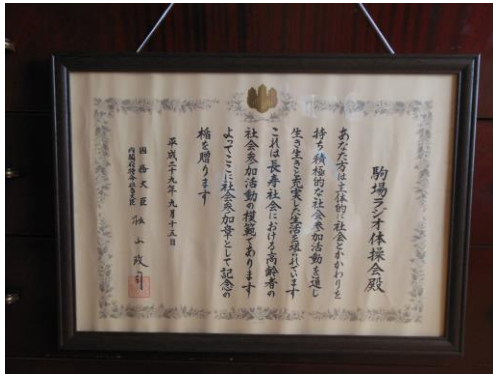 駒場ラジオ体操会殿
あなた方は主体的に社会とかかわりを
持ち積極的な社会参加活動を通し
生き生きと充実した生活を送られています
これは長寿社会における高齢者の
社会参加活動の模範であります
よってここに社会参加章として記念の
楯を贈ります
平成二十九年九月十五日
国務大臣
内閣府特命担当大臣
松山政司